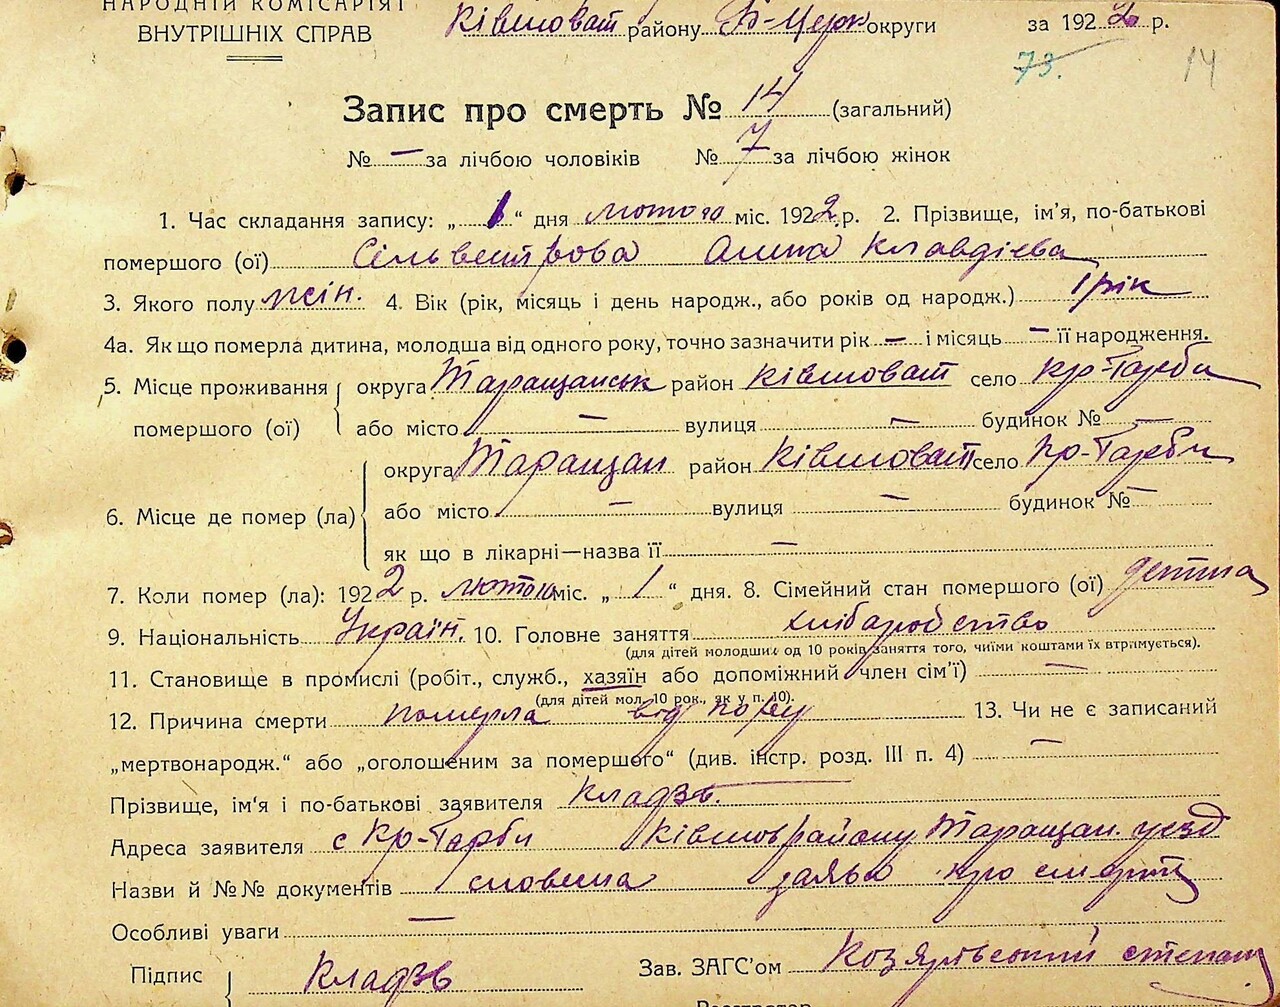 НАРОДНІЙ КОМІСАРІЯТ
ВНУТРІШНІХ СПРАВ
Ківшоват району Б-Церк округи за 1922 р.
73. 14
Запис про смерть № 14 (загальний)
№ — за лічбою чоловіків № 7 за лічбою жінок
1. Час складання запису: „ 1 “ дня лютого міс. 1922 р. 2. Прізвище, ім’я, по-батькові
помершого (ої) Сільвестрова Олина Клавдієва
3. Якого полу жін. 4. Вік (рік, місяць і день народж., або років од народж.) 1 рік
4а. Як що померла дитина, молодша від одного року, точно зазначити рік — і місяць — її народження.
5. Місце проживання помершого (ої) округа Таращанськ район Ківшоват село Кр-Гарби
або місто — вулиця — будинок № —
6. Місце де помер (ла) округа Таращан район Ківшоват село Кр-Гарби
або місто — вулиця — будинок № —
як що в лікарні—назва її —
7. Коли помер (ла): 1922 р. лютого міс. „ 1 “ дня. 8. Сімейний стан помершого (ої) детина
9. Національність Україн. 10. Головне заняття хлібаробство
(для дітей молодших од 10 років заняття того, чиїми коштами їх втримується).
11. Становище в промислі (робіт., служб., хазяїн або допоміжний член сім’ї) —
(для дітей мол. 10 рок., як у п. 10).
12. Причина смерти померла від 13. Чи не є записаний
„мертвонародж.“ або „оголошеним за помершого“ (див. інстр. розд. III п. 4) —
Прізвище, ім’я і по-батькові заявителя Кладзь.
Адреса заявителя с Кр-Гарби Ківшов району Таращан. уезд
Назви й №№ документів словесна заява про смерть
Особливі уваги —
Підпис Кладзь Зав. ЗАГС’ом Козярівський степан